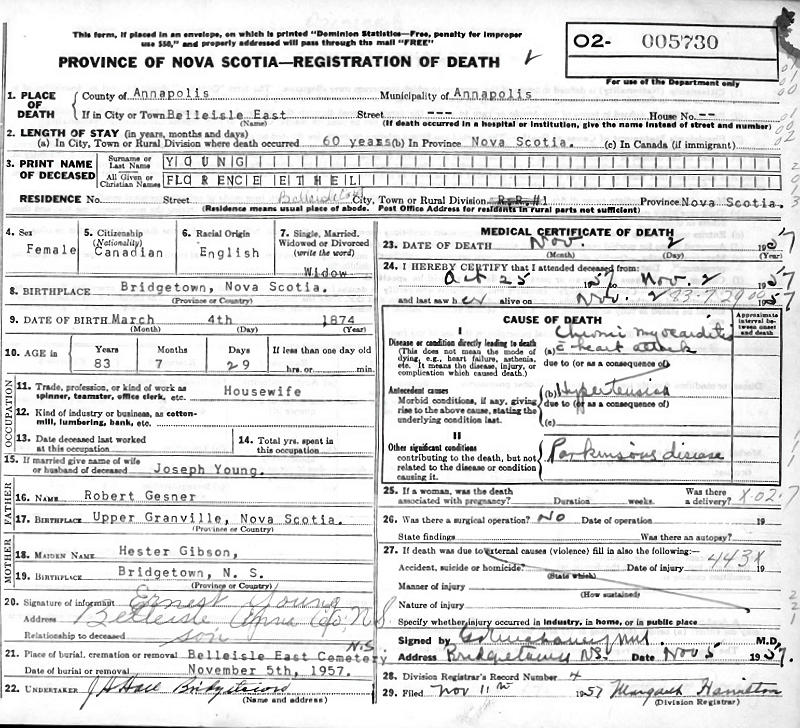 This form, if placed in an envelope, on which is printed "Dominion Statistics—Free, penalty for improper
use $50," and properly addressed will pass through the mail "FREE"
PROVINCE OF NOVA SCOTIA—REGISTRATION OF DEATH
02- 005730
For use of the Department only
1. PLACE OF DEATH
County of Annapolis Municipality of Annapolis
If in City or Town Belleisle East Street --- House No. --
(Name) (If death occurred in a hospital or institution, give the name instead of street and number)
2. LENGTH OF STAY (in years, months and days)
(a) In City, Town or Rural Division where death occurred 60 years (b) In Province Nova Scotia. (c) In Canada (if immigrant)
3. PRINT NAME OF DECEASED
Surname or Last Name YOUNG
All Given or Christian Names FLORENCE ETHEL
RESIDENCE No. Street Belleisle City, Town or Rural Division R.R.#1 Province Nova Scotia.
(Residence means usual place of abode. Post Office Address for residents in rural parts not sufficient)
4. Sex Female
5. Citizenship (Nationality) Canadian
6. Racial Origin English
7. Single, Married, Widowed or Divorced (write the word) Widow
8. BIRTHPLACE Bridgetown, Nova Scotia.
(Province or Country)
9. DATE OF BIRTH March 4th 1874
(Month) (Day) (Year)
10. AGE in Years 83 Months 7 Days 29 If less than one day old hrs. or min.
OCCUPATION
11. Trade, profession, or kind of work as spinner, teamster, office clerk, etc. Housewife
12. Kind of industry or business, as cotton-mill, lumbering, bank, etc.
13. Date deceased last worked at this occupation
14. Total yrs. spent in this occupation
15. If married give name of wife or husband of deceased Joseph Young.
FATHER
16. NAME Robert Gesner
17. BIRTHPLACE Upper Granville, Nova Scotia.
(Province or Country)
MOTHER
18. MAIDEN NAME Hester Gibson,
19. BIRTHPLACE Bridgetown, N. S.
(Province or Country)
20. Signature of informant Ernest Young
Address Belleisle Anna Co, N.S.
Relationship to deceased son
21. Place of burial, cremation or removal Belleisle East Cemetery N.S
Date of burial or removal November 5th, 1957.
22. UNDERTAKER J H Hall Bridgetown
(Name and address)
MEDICAL CERTIFICATE OF DEATH
23. DATE OF DEATH Nov. 2 1957
(Month) (Day) (Year)
24. I HEREBY CERTIFY that I attended deceased from:
Oct 25 1957 to Nov. 2 1957
and last saw her alive on Nov. 2 83-7-29 1957
CAUSE OF DEATH
Approximate interval between onset and death
I
Disease or condition directly leading to death
(This does not mean the mode of dying, e.g., heart failure, asthenia, etc. It means the disease, injury, or complication which caused death.)
(a) Chronic myocarditis c heart attack
due to (or as a consequence of)
Antecedent causes
Morbid conditions, if any, giving rise to the above cause, stating the underlying condition last.
(b) Hypertension
due to (or as a consequence of)
(c)
II
Other significant conditions
contributing to the death, but not related to the disease or condition causing it.
Parkinsons disease
25. If a woman, was the death associated with pregnancy? Duration weeks. Was there a delivery? X.02.7
26. Was there a surgical operation? No Date of operation 19
State findings Was there an autopsy?
27. If death was due to external causes (violence) fill in also the following:—
Accident, suicide or homicide? Date of injury 443X 19
(State which)
Manner of injury
(How sustained)
Nature of injury
Specify whether injury occurred in industry, in home, or in public place
Signed by M.D.
Address Bridgetown NS. Date Nov 5 1957.
28. Division Registrar's Record Number 4
29. Filed Nov 11th 1957 Margaret Hamilton
(Division Registrar)